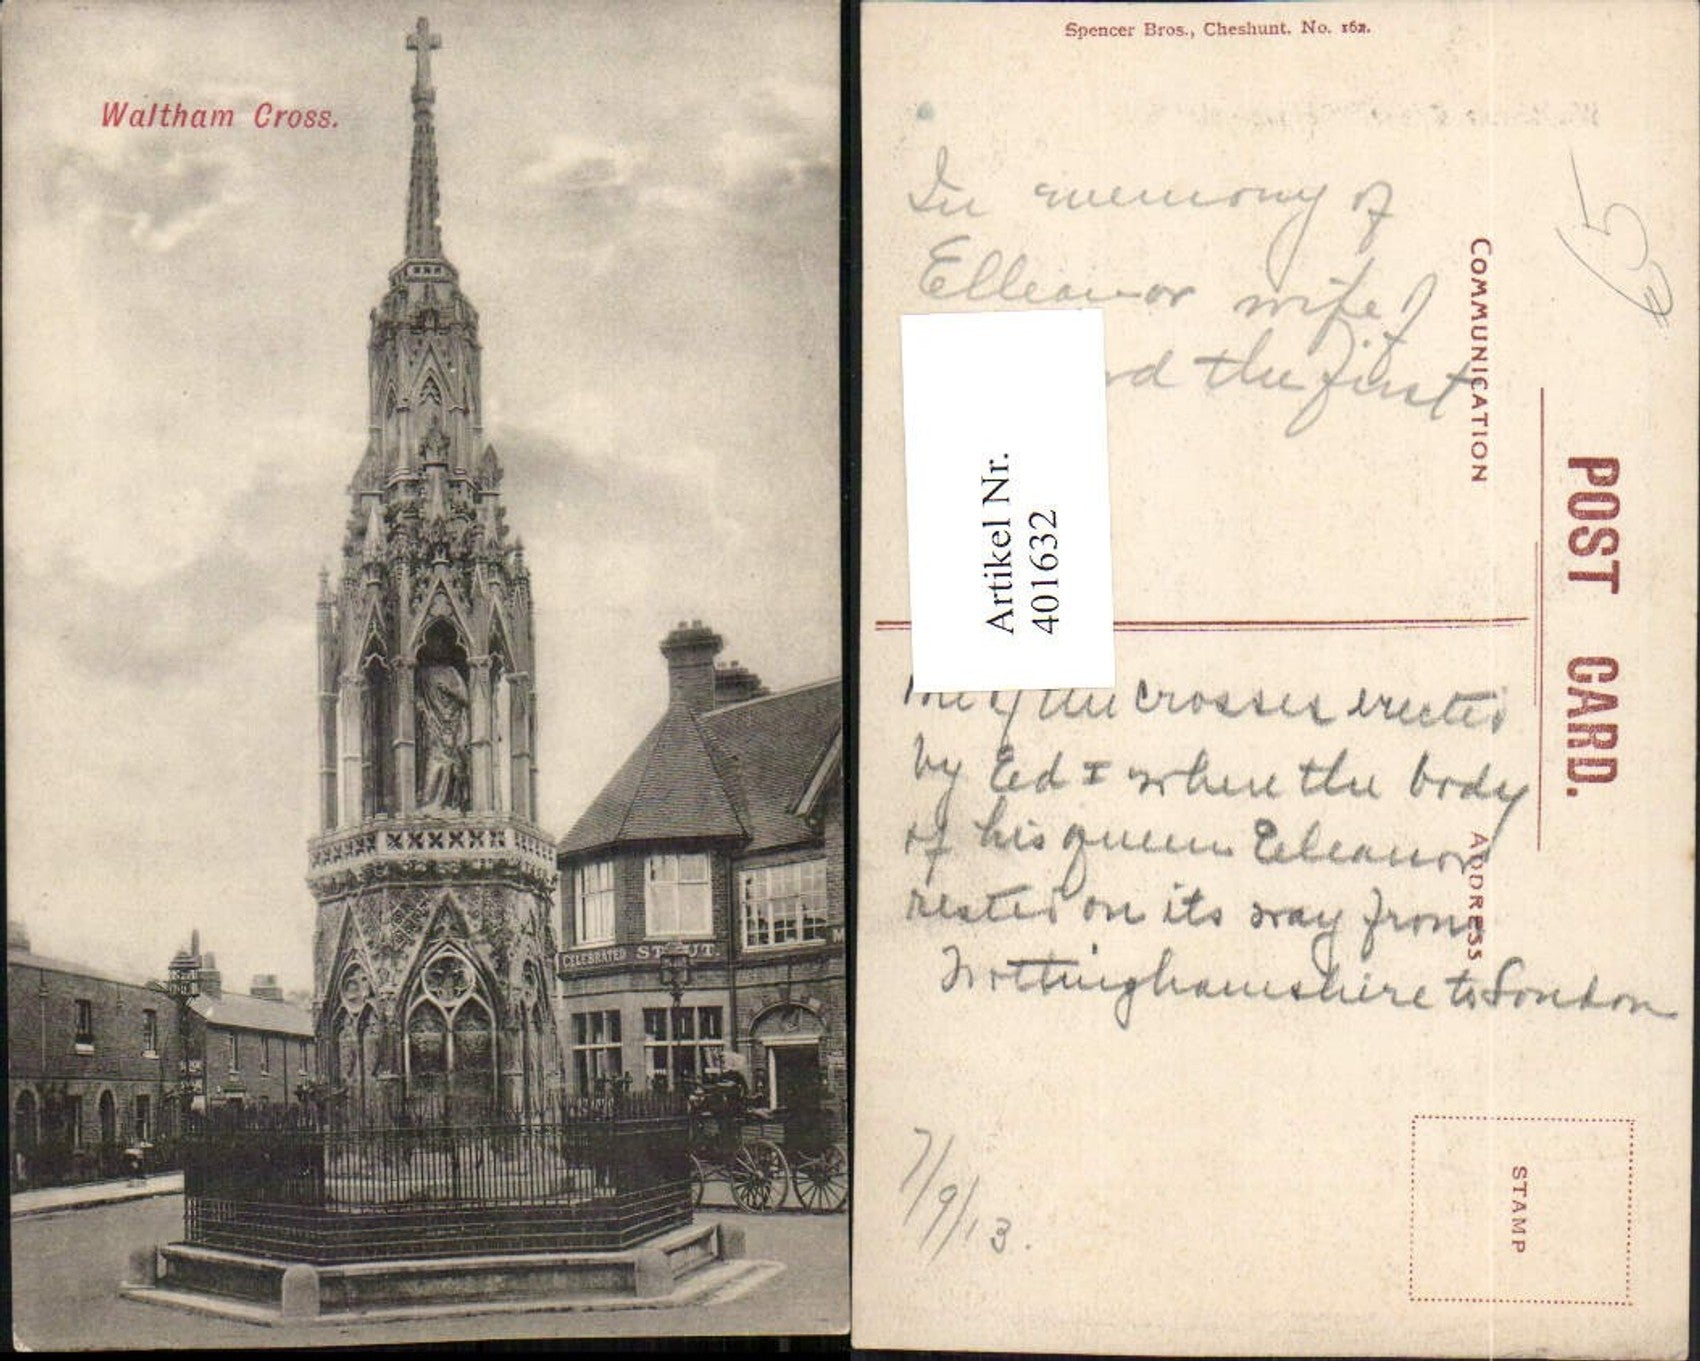 Waltham Cross.
CELEBRATED STOUT.
Spencer Bros., Cheshunt. No. 162.
In memory of
Elleanor wife of
rd the first
Artikel Nr.
401632
COMMUNICATION
POST CARD.
ADDRESS
of the crosses erected
by Ed I where the body
of his queen Eleanor
rested on its way from
Nottinghamshire to London
7/9/13.
STAMP